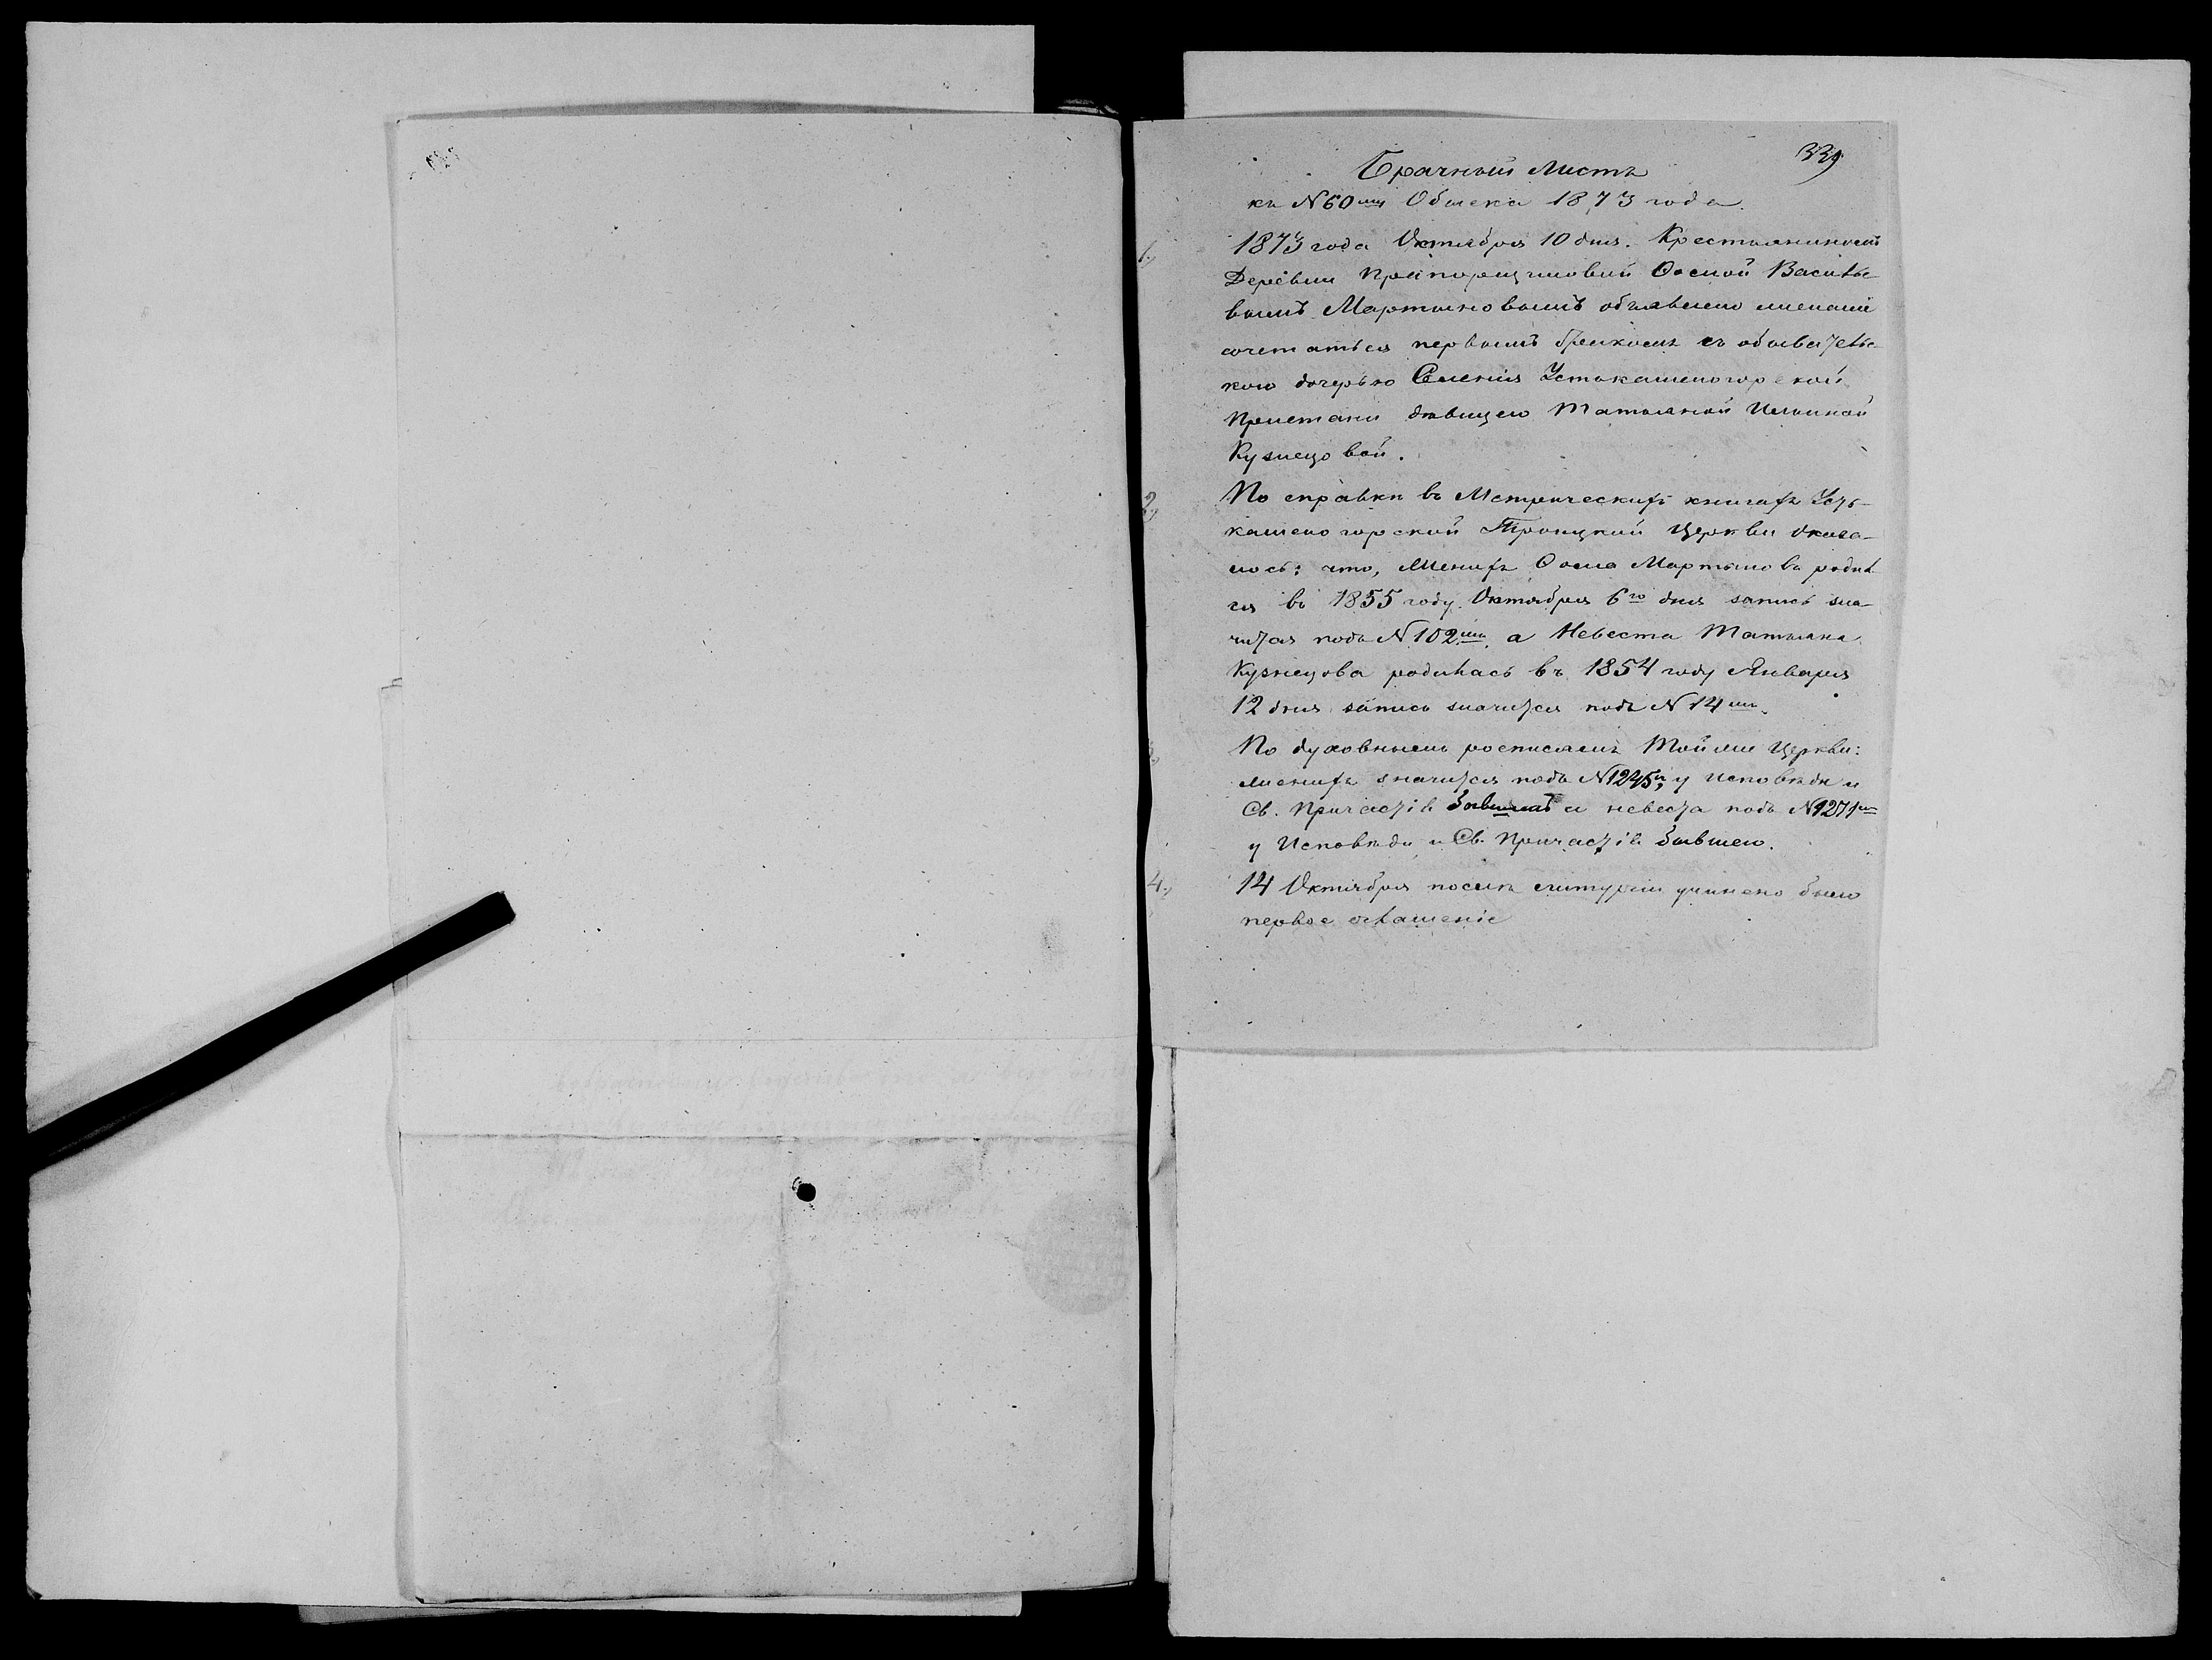 339
Брачный Листъ
къ №60му Обыска 1873 года.
1.) 1873 года Октября 10 дня. Крестьяниномъ
Деревни Прапорщиковой Ѳомой Василье-
вымъ Мартыновымъ объявлено желаніе
сочетаться первымъ бракомъ съ обыватель-
кою дочерью Селенія Устькаменогорской
Пристани дѣвицею Татьяной Ильиной
Кузнецовой.
2.) По справкѣ въ Метрическихъ книгахъ Усть-
каменогорской Троицкой Церкви Оказа-
лось: что, Женихъ Ѳома Мартыновъ родил
ся въ 1855 году Октября 6го дня запись зна-
чится подъ №102мъ, а Невеста Татьяна
Кузнецова родилась въ 1854 году Января
12 дня запись значится подъ №14мъ.
По духовнымъ росписямъ Той же Церкви:
женихъ значится подъ №1245, у Исповѣди и
Св. Причастія бывшимъ а невеста подъ №1271мъ
у Исповѣди и Св. Причастія бывшею.
4.) 14 Октября послѣ литургіи учинено было
первое оглашеніе